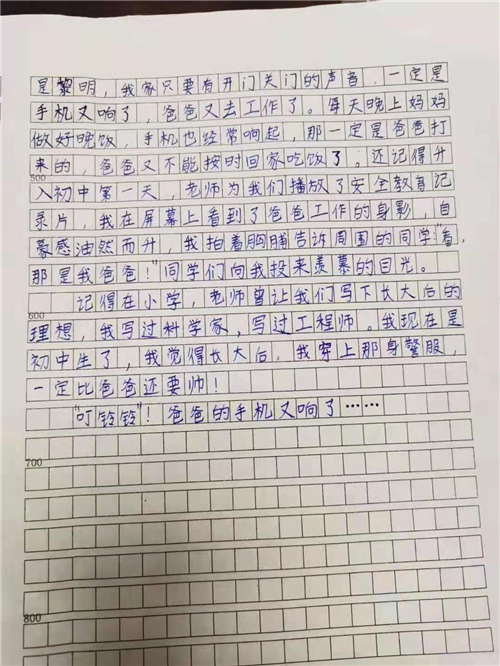 是黎明，我家只要有开门关门的声音，一定是
手机又响了，爸爸又去工作了。每天晚上妈妈
做好晚饭，手机也经常响起，那一定是爸爸打
来的，爸爸又不能按时回家吃饭了。还记得升
500
入初中第一天，老师为我们播放了安全教育记
录片，我在屏幕上看到了爸爸工作的身影，自
豪感油然而升，我拍着胸脯告诉周围的同学“看，
那是我爸爸！”同学们向我投来羡慕的目光。
记得在小学，老师曾让我们写下长大后的
600
理想，我写过科学家，写过工程师。我现在是
初中生了，我觉得长大后，我穿上那身警服，
一定比爸爸还要帅！
“叮铃铃”！爸爸的手机又响了……
700
800